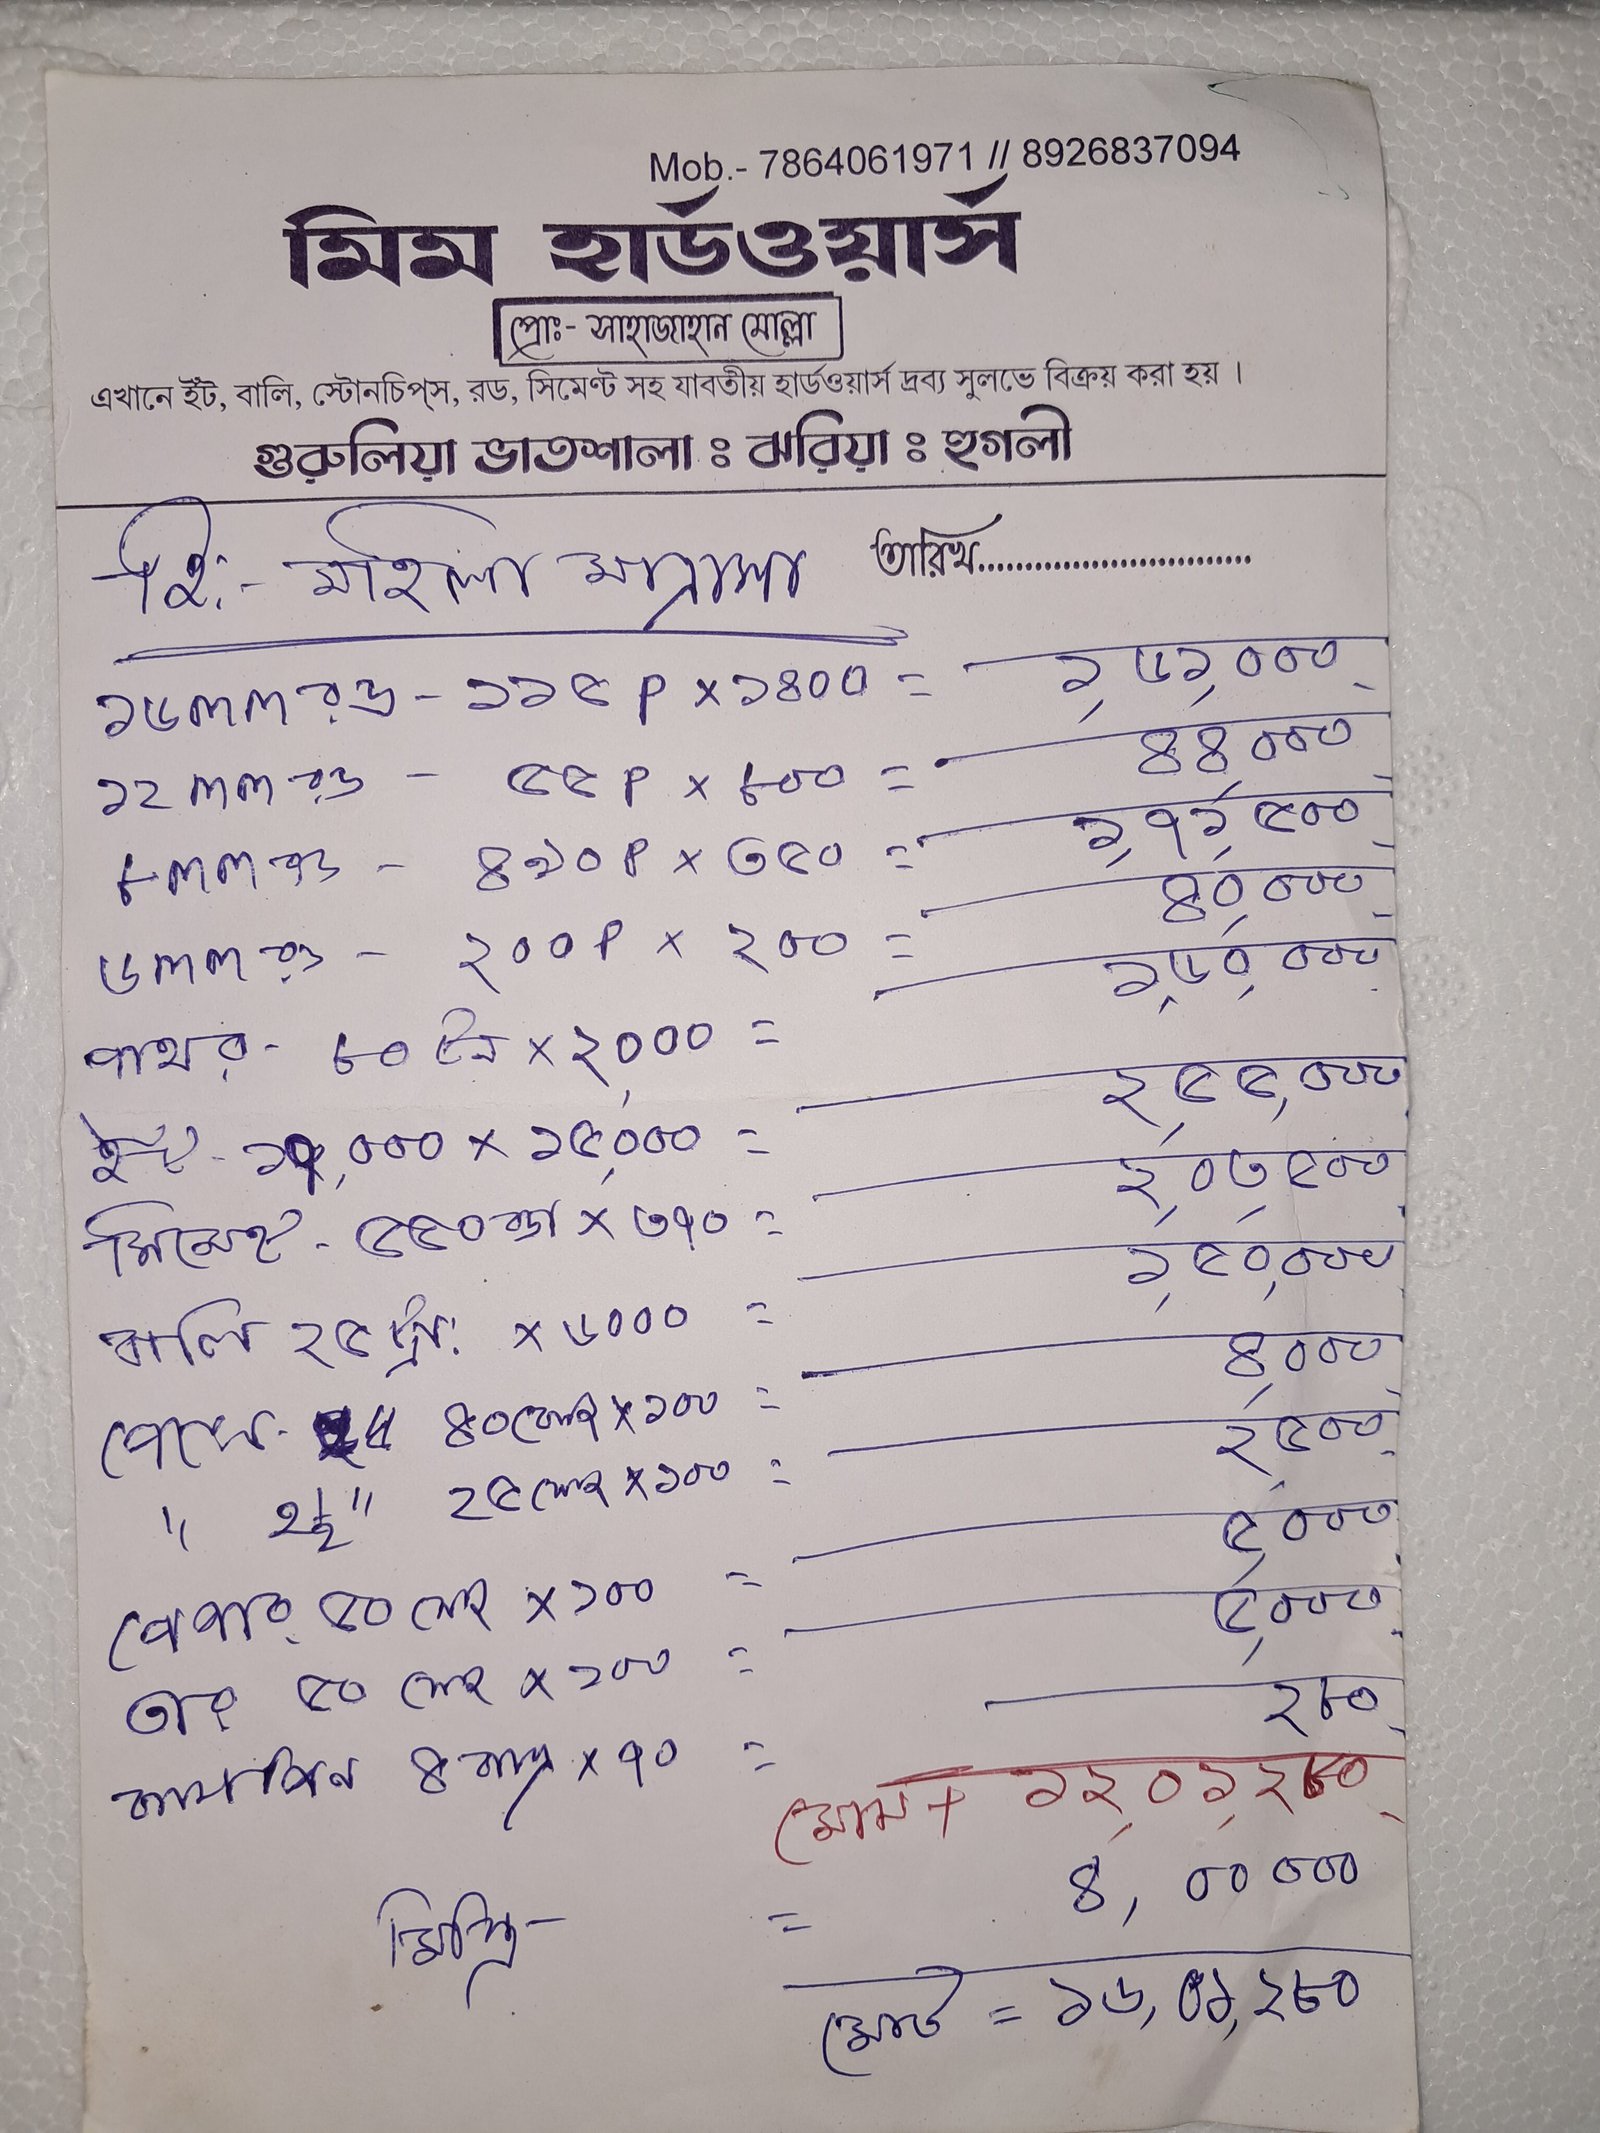 Mob.- 7864061971 // 8926837094
মিম হার্ডওয়ার্স
প্রোঃ- সাহাজাহান মোল্লা
এখানে ইঁট, বালি, স্টোনচিপ্‌স, রড, সিমেণ্ট সহ যাবতীয় হার্ডওয়ার্স দ্রব্য সুলভে বিক্রয় করা হয় ।
গুরুলিয়া ভাতশালা ঃ ঝরিয়া ঃ হুগলী
হি:- মহিলা মাদ্রাসা তারিখ..............................
১৬mm রড - ১১৫ P x ১৪০০ = ১,৬১,০০০
১২ mm রড - ৫৫ P x ৮০০ = ৪৪০০০
৮mm রড - ৪৯০ P x ৩৫০ = ১,৭১,৫০০
৬mm রড - ২০০ P x ২০০ = ৪০,০০০
পাথর - ৮০ টন x ২,০০০ = ১,৬০,০০০
ইট - ১৭,০০০ x ১৫,০০০ = ২,৫৫,০০০
সিমেন্ট - ৫৫০ বস্তা x ৩৭০ = ২,০৩,৫০০
বালি ২৫ ট্রা: x ৬০০০ = ১,৫০,০০০
পেরেক - ৪০ কেজি x ১০০ = ৪,০০০
" ২½" ২৫ কেজি x ১০০ = ২,৫০০
৫০ কেজি x ১০০ = ৫,০০০
তার ৫০ কেজি x ১০০ = ৫,০০০
৪ x ৭০ = ২৮০
১২,০১,২৮০
মিস্ত্রি - = ৪,০০০০০
মোট = ১৬,০১,২৮০